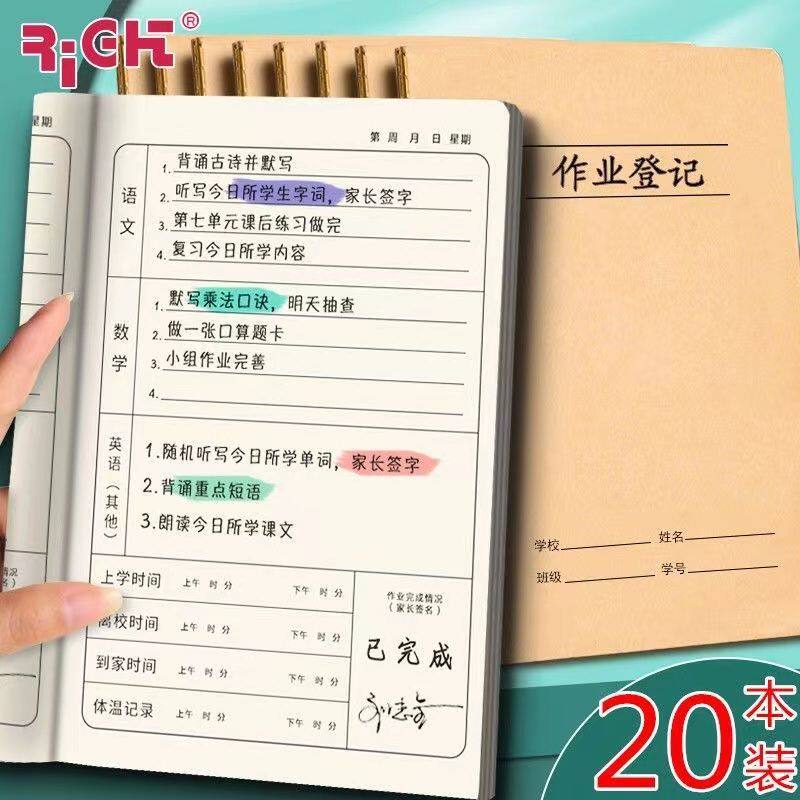 RiCH®
星期
第 周 月 日 星期
语文
1. 背诵古诗并默写
2. 听写今日所学生字词，家长签字
3. 第七单元课后练习做完
4. 复习今日所学内容
数学
1. 默写乘法口诀，明天抽查
2. 做一张口算题卡
3. 小组作业完善
4.
英语（其他）
1.随机听写今日所学单词，家长签字
2.背诵重点短语
3.朗读今日所学课文
上学时间 上午 时 分 下午 时 分
离校时间 上午 时 分 下午 时 分
到家时间 上午 时 分 下午 时 分
体温记录 上午 时 分 下午 时 分
作业完成情况
（家长签名）
已完成
情况
名）
作业登记
学校 姓名
班级 学号
20本装